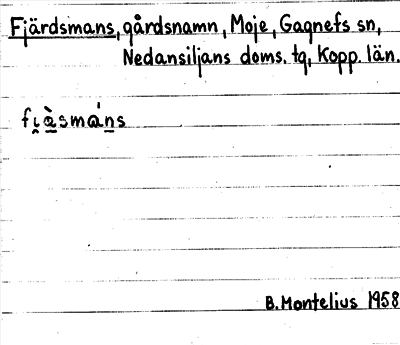 Fjärdsmans, gårdsnamn, Moje, Gagnefs sn,
Nedansiljans doms. tq, Kopp. län.
fi̯ä̀smáns
B. Montelius 1958